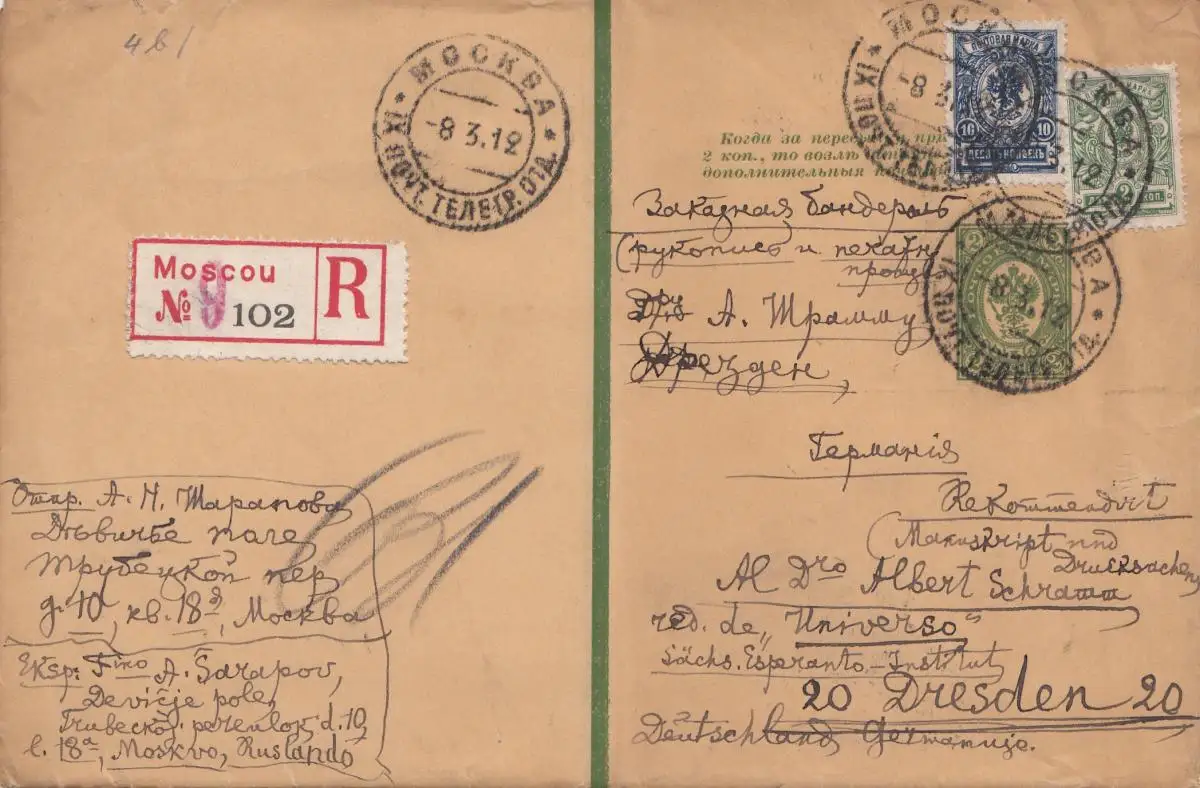 4 b/
МОСКВА
-8 3.12
IX ПОЧТ. ТЕЛЕГР. ОТД.
Moscou
№ 9 102
R
Отпр. А. Н. Шарапова
Дѣвичье поле
Трубецкой пер
д. 10, кв. 18ª, Москва
Eksp: Fino A. Ŝarapov,
Deviĉje pole,
Trubeckoj pereulok d. 10,
l. 18ª, Moskvo, Ruslando
МОСКВА
-8 3.12
ПОЧТОВАЯ МАРКА
10 10
ДЕСЯТЬ КОПѢЕКЪ
2
КОП.
Когда за пересылку
2 коп., то
дополнительныя
Заказная бандероль
(рукопись и печатн
произв
Дру А. Шрамму
Дрезден,
МОСКВА
-8 3.12
Германія
Rekommendirt
(Manuskript und
Drucksachen)
Al Dro Albert Schramm
red. de „Universo"
Sächs. Esperanto-Institut
20 Dresden 20
Deutschland Germanujo.